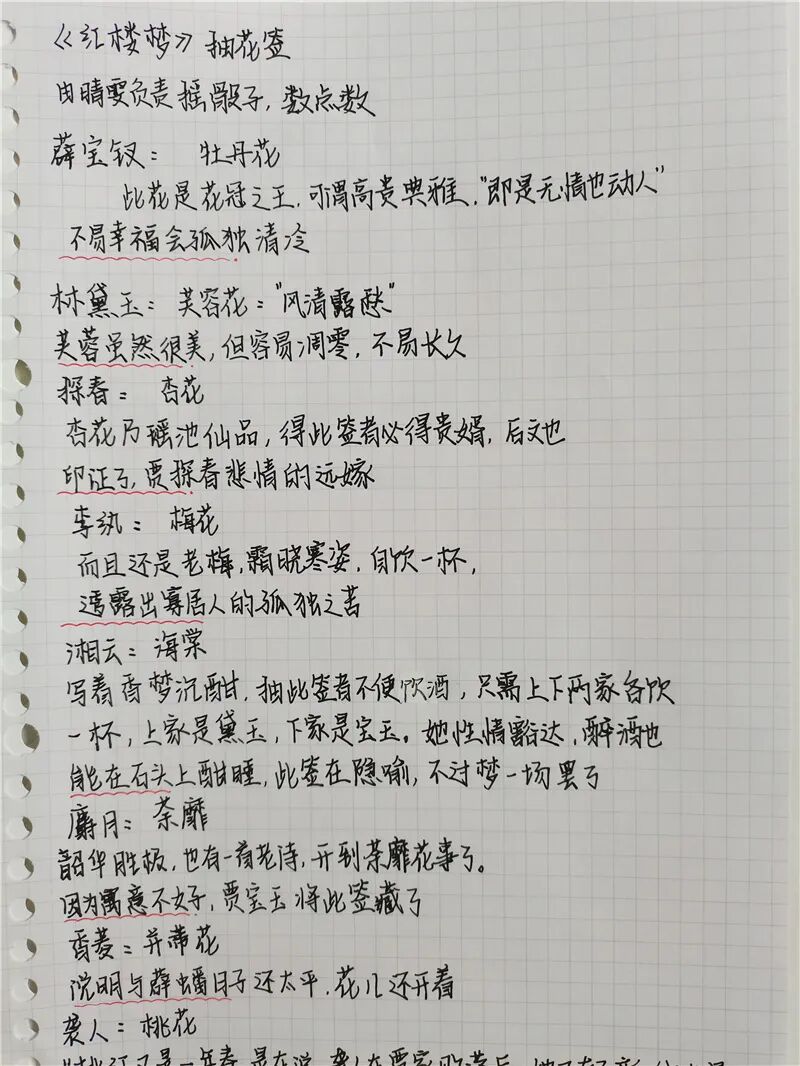 《红楼梦》抽花签
由晴雯负责摇骰子，数点数
薛宝钗： 牡丹花
此花是花冠之王，可谓高贵典雅，"即是无情也动人"
不易幸福会孤独清冷
林黛玉：芙容花："风清露愁"
芙蓉虽然很美，但容易凋零，不易长久
探春： 杏花
杏花乃瑶池仙品，得此签者必得贵婿，后文也
印证了，贾探春悲情的远嫁
李纨： 梅花
而且还是老梅，霜晓寒姿，自饮一杯，
透露出寡居人的孤独之苦
湘云：海棠
写着香梦沉酣，抽此签者不便饮酒，只需上下两家各饮
一杯，上家是黛玉，下家是宝玉。她性情豁达，醉酒也
能在石头上酣睡，此签在隐喻，不过梦一场罢了
麝月： 荼靡
韶华胜极，也有一首老诗，开到荼靡花事了。
因为寓意不女子，贾宝玉将此签藏了
香菱：并蒂花
说明与薛蟠日子还太平，花儿还开着
袭人：桃花
又是一年春，是在说，袭人在贾家败落后，